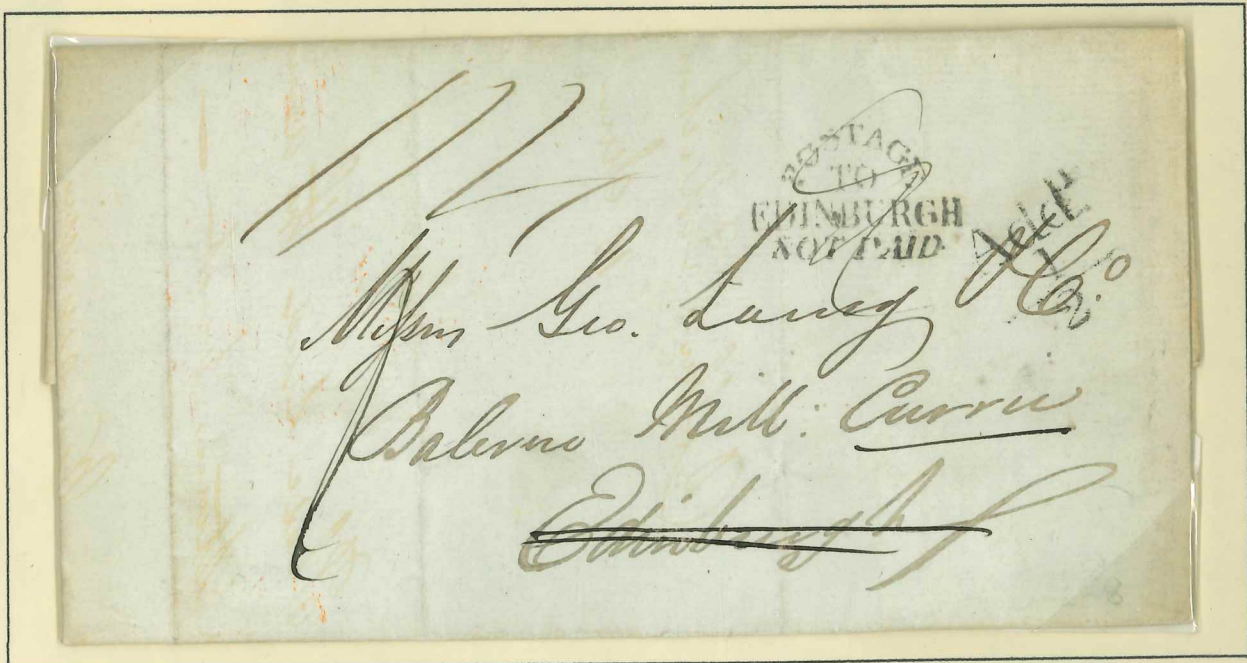 POSTAGE
TO
EDINBURGH
NOT PAID
Add ½
Messrs Geo. Laing & Co.
Balerno Mill: Currie
Edinburgh